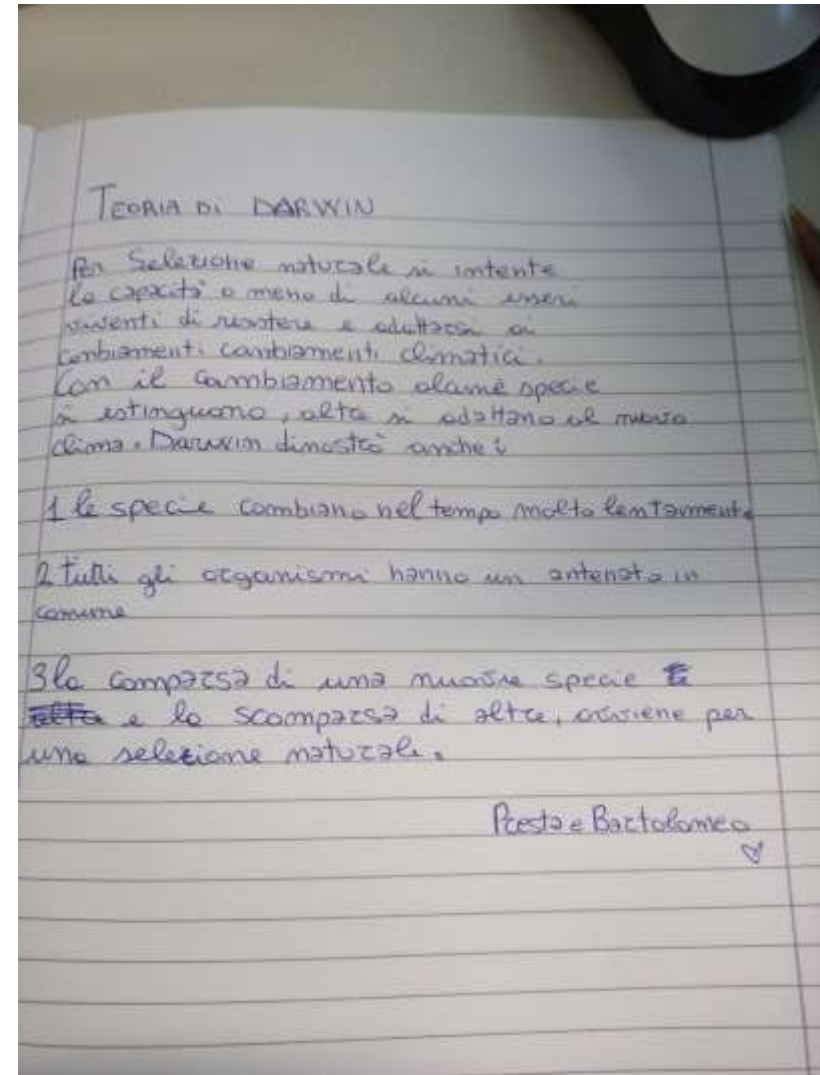 TEORIA DI DARWIN
Per Selezione naturale si intente
la capacità o meno di alcuni esseri
viventi di resistere e adattarsi ai
cambiamenti cambiamenti climatici.
Con il cambiamento alcune specie
si estinguono, altre si adattano al nuovo
clima. Darwin dimostrò anche:
1 le specie cambiano nel tempo molto lentamente
2 tutti gli organismi hanno un antenato in
comune
3 la comparsa di una nuova specie
e la scomparsa di altre, avviene per
una selezione naturale.
Presta e Bartolomeo